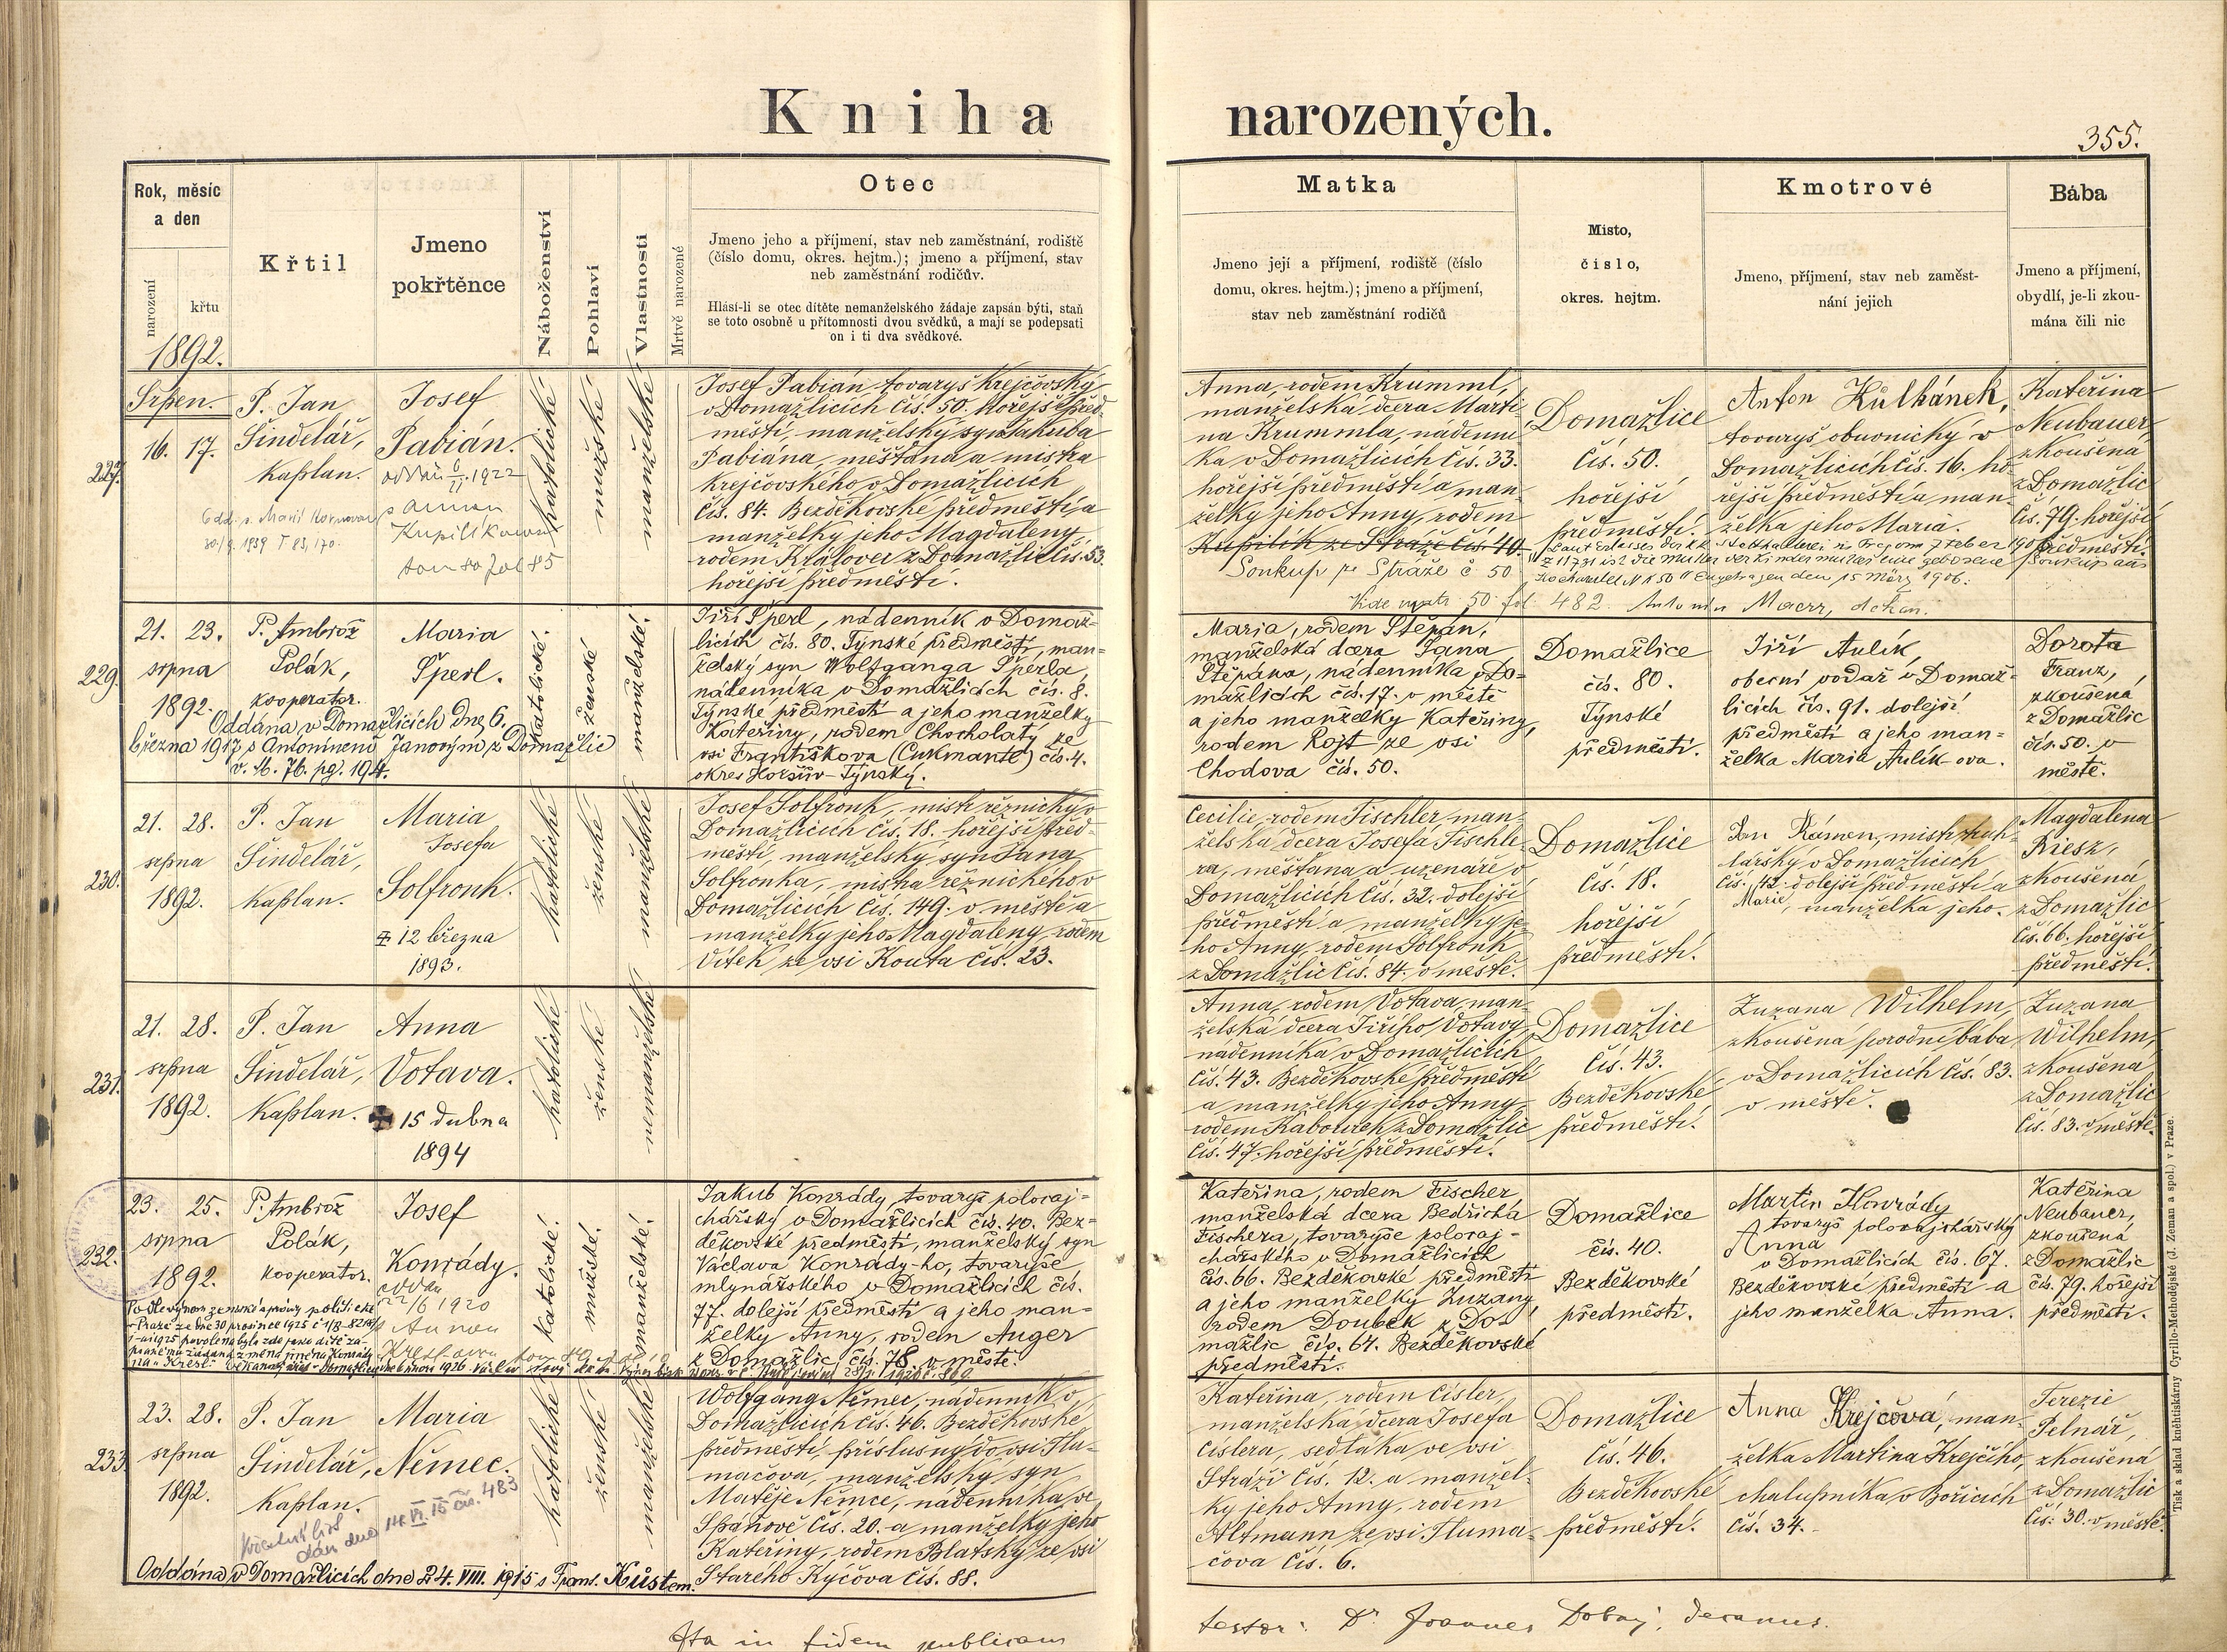 Kniha narozených.
355.
Rok, měsíc
a den
narození
křtu
1892.
Křtil
Jmeno
pokřtěnce
Náboženství
Pohlaví
Vlastnosti
Mrtvě narozené
Otec
Jmeno jeho a příjmení, stav neb zaměstnání, rodiště
(číslo domu, okres. hejtm.); jmeno a příjmení, stav
neb zaměstnání rodičův.
Hlásí-li se otec dítěte nemanželského žádaje zapsán býti, staň
se toto osobně u přítomnosti dvou svědků, a mají se podepsati
on i ti dva svědkové.
Matka
Jmeno její a příjmení, rodiště (číslo
domu, okres. hejtm.); jmeno a příjmení,
stav neb zaměstnání rodičů
Místo,
číslo,
okres. hejtm.
Kmotrové
Jmeno, příjmení, stav neb zaměst-
nání jejich
Bába
Jmeno a příjmení,
obydlí, je-li zkou-
mána čili nic
227.
Srpen.
16. 17.
P. Jan
Šindelář,
kaplan.
Josef
Fabián.
katolické
mužské
manželské
Josef Fabián tovaryš krejčovský
v Domažlicích čís. 50. hořejší před-
městí, manželský syn Jakuba
Fabiána, měštana a mistra
krejčovského v Domažlicích
čís. 84. Bezděkovské předměstí a
manželky jeho Magdaleny
rodem Královec z Domažlic čís. 53.
hořejší předměstí.
Anna, rodem Krumml,
manželská dcera Marti-
na Krummla, nádenní-
ka v Domažlicích čís. 33.
hořejší předměstí a man-
želky jeho Anny, rodem
Kupilík ze Straže čís. 40.
Soukup ze Stráže č 50
Vide matr. 50 fol. 482. Antonín Macrr, děkan.
Domažlice
čís. 50.
hořejší
předměstí.
Anton Kůlhánek,
tovaryš obuvnický v
Domažlicích čís. 16. ho-
řejší předměstí a man-
želka jeho Maria.
Kateřina
Neubauer,
zkoušená
z Domažlic
čís. 79. hořejší
předměstí.
229.
21. 23.
srpna
1892.
P. Ambrož
Polák,
kooperator.
Maria
Šperl.
Oddána v Domažlicích dne 6.
března 1917 s Antonínem Janovým z Domažlic
v. M. 76. pg. 194.
katolické.
ženské
manželské.
Jiří Šperl, nádenník v Domaž-
licích čís. 80. Týnské předměstí, man-
želský syn Wolfganga Šperla,
nádenníka v Domažlicích čís. 8.
Týnské předměstí a jeho manželky
Kateřiny, rodem Chocholatý ze
vsi Františkova (Curkmantl) čís. 4.
okres Horšův-Týnský.
Maria, rodem Štěpán,
manželská dcera Jana
Štěpána, nádenníka v Do-
mažlicích čís. 17. v městě
a jeho manželky Kateřiny,
rodem Rojt ze vsi
Chodova čís. 50.
Domažlice
čís. 80.
Týnské
předměstí.
Jiří Aulík,
obecní vodař v Domaž-
licích čís. 91. dolejší
předměstí a jeho man-
želka Maria Aulík-ova.
Dorota
Franz,
zkoušená
z Domažlic
čís. 50. v
městě.
230.
21. 28.
srpna
1892.
P. Jan
Šindelář,
kaplan.
Maria
Josefa
Solfronk.
12 března
1893.
katolické
ženské
manželské
Josef Solfronk, mistr řeznický v
Domažlicích čís. 18. hořejší před-
městí, manželský syn Jana
Solfronka, mistra řeznického v
Domažlicích čís. 149. v městě a
manželky jeho Magdaleny, rodem
Vítek ze vsi Kouta čís. 23.
Cecilie, rodem Tischler man-
želská dcera Josefa Tischle-
ra, měštana a uzenáře v
Domažlicích čís. 32. dolejší
předměstí a manželky je-
ho Anny, rodem Solfronk
z Domažlic čís. 84. v městě.
Domažlice
čís. 18.
hořejší
předměstí.
Jan Kámen, mistr truh-
lářský v Domažlicích
čís. 42. dolejší předměstí a
Marie, manželka jeho.
Magdalena
Riesz,
zkoušená
z Domažlic
čís. 66. hořejší
předměstí.
231.
21. 28.
srpna
1892.
P. Jan
Šindelář,
kaplan.
Anna
Votava.
15 dubna
1894
katolické
ženské
nemanželské
Anna, rodem Votava, man-
želská dcera Jiřího Votavy,
nádenníka v Domažlicích
čís. 43. Bezděkovské předměstí
a manželky jeho Anny
rodem Kabourek z Domažlic
čís. 47. hořejší předměstí.
Domažlice
čís. 43.
Bezděkovské
předměstí.
Zuzana Wilhelm,
zkoušená porodní bába
v Domažlicích čís. 83.
v městě.
Zuzana
Wilhelm,
zkoušená
z Domažlic
čís. 83. v městě.
232.
23. 25.
srpna
1892.
P. Ambrož
Polák,
kooperator.
Josef
Konrády.
22/6 1920
katolické.
mužské.
manželské.
Jakub Konrády, tovaryš poloraj-
chářský v Domažlicích čís. 40. Bez-
děkovské předměstí, manželský syn
Václava Konrády-ho, tovaryše
mlynářského v Domažlicích čís.
77. dolejší předměstí a jeho man-
želky Anny, rodem Auger
z Domažlic, čís. 78 v městě.
Kateřina, rodem Fischer
manželská dcera Bedřicha
Fischera, tovaryše poloraj-
chářského v Domažlicích
čís. 66. Bezděkovské předměstí
a jeho manželky Zuzany,
rodem Doubek z Do-
mažlic čís. 64. Bezděkovské
předměstí.
Domažlice
čís. 40.
Bezděkovské
předměstí.
Martin Konrády
tovaryš polorajchářský
Anna
v Domažlicích čís. 67.
Bezděkovské předměstí a
jeho manželka Anna.
Kateřina
Neubauer,
zkoušená
z Domažlic
čís. 79. hořejší
předměstí.
233.
23. 28.
srpna
1892.
P. Jan
Šindelář,
kaplan.
Maria
Němec.
Křestní list
dán dne 14. VI. 15 čís. 483
Oddána v Domažlicích dne 24. VIII. 1915 s Frant. Kůstem.
katolické
ženské
manželské
Wolfgang Němec, nádenník v
Domažlicích čís. 46. Bezděkovské
předměstí, příslušný do vsi Tlu-
mačova, manželský syn
Matěje Němce, nádenníka ve
Spáňově čís. 20. a manželky jeho
Kateřiny, rodem Blatský ze vsi
Starého Kýčova čís. 88.
Kateřina, rodem Cisler,
manželská dcera Josefa
Cislera, sedláka ve vsi
Stráži čís. 12. a manžel-
ky jeho Anny, rodem
Altmann ze vsi Tluma-
čova čís. 6.
Domažlice
čís. 46.
Bezděkovské
předměstí.
Anna Krejčová, man-
želka Martina Krejčího,
chalupníka v Bořicích
čís. 34.
Terezie
Pelnář,
zkoušená
z Domažlic
čís. 30. v městě.
Ita in fidem publicam
testor: Dr. Joannes Dobný, decanus.
Tisk a sklad knihtiskárny Cyrillo-Methodějské (J. Zeman a spol.) v Praze.